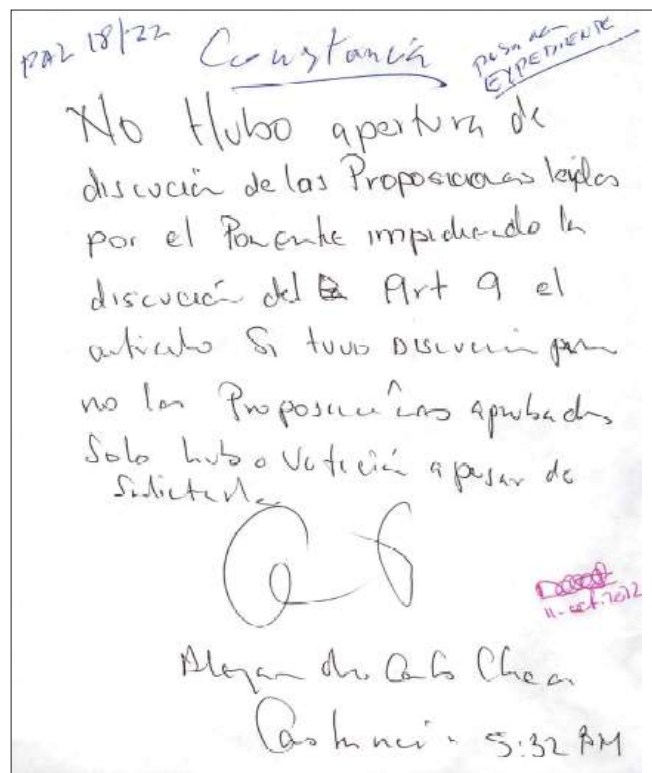 PAL 18/22 Constancia pasa al
EXPEDIENTE
No Hubo apertura de
discución de las Proposiciones leidas
por el Ponente impidiendo la
discución del Art 9 el
articulo Si tuvo Discución pero
no las Proposiciones aprobadas
Solo hubo Votación apesar de
Solicitarla
11-oct.2022
Alejandro Carlo Chacón
5:32 PM